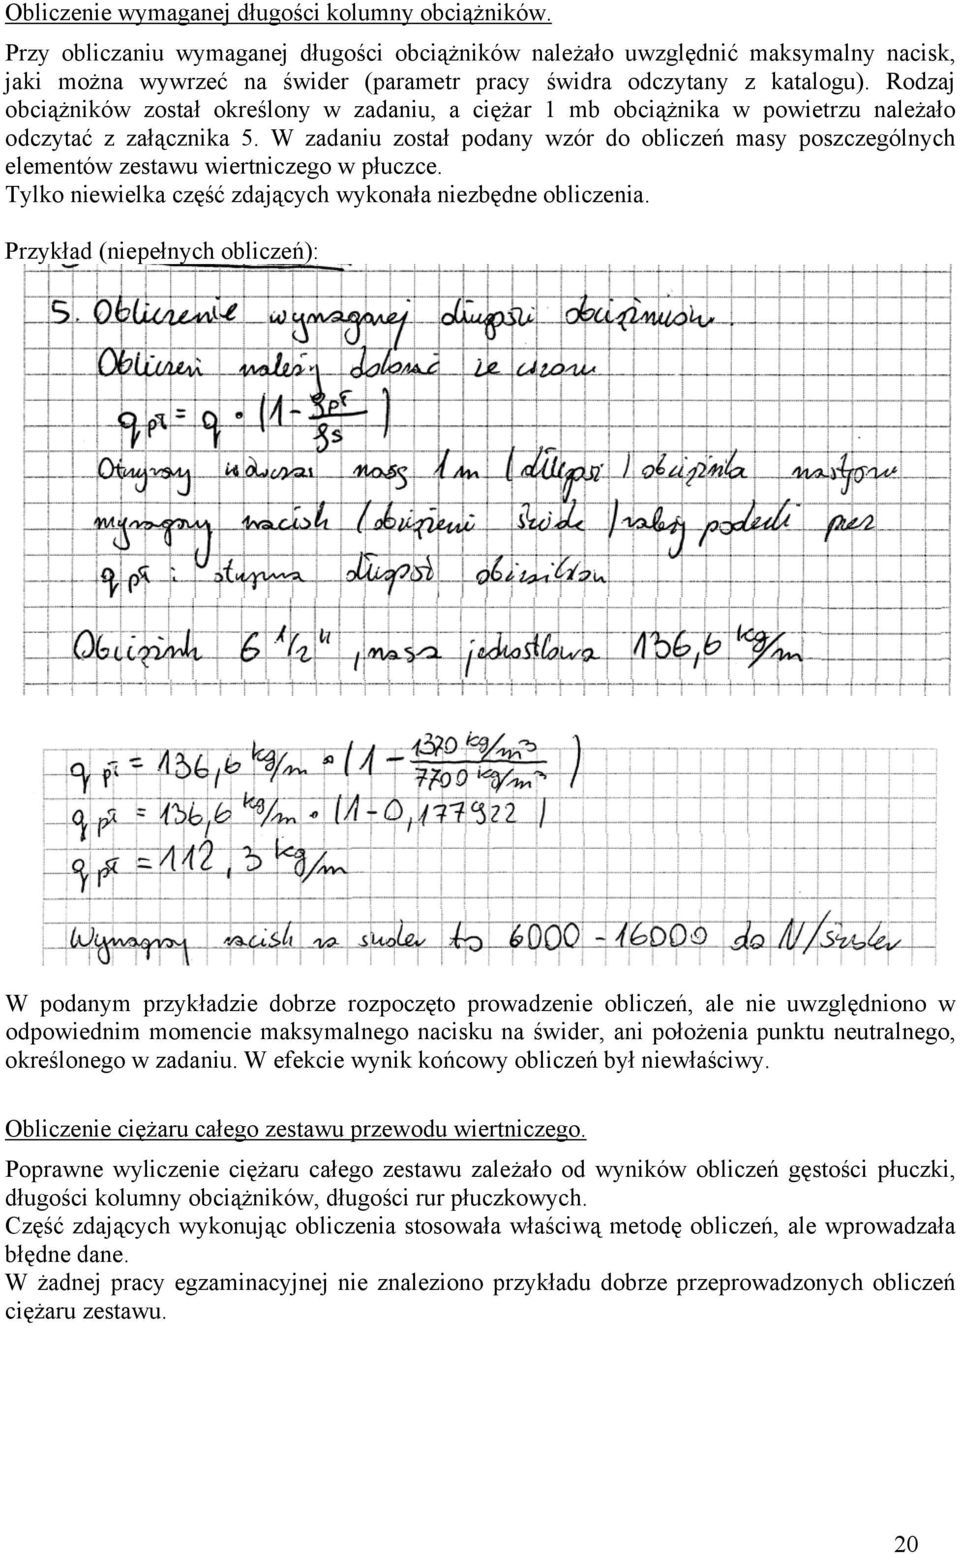 Obliczenie wymaganej długości kolumny obciążników.
Przy obliczaniu wymaganej długości obciążników należało uwzględnić maksymalny nacisk,
jaki można wywrzeć na świder (parametr pracy świdra odczytany z katalogu). Rodzaj
obciążników został określony w zadaniu, a ciężar 1 mb obciążnika w powietrzu należało
odczytać z załącznika 5. W zadaniu został podany wzór do obliczeń masy poszczególnych
elementów zestawu wiertniczego w płuczce.
Tylko niewielka część zdających wykonała niezbędne obliczenia.
Przykład (niepełnych obliczeń):
5. Obliczenie wymaganej długości obciążników.
Obliczeń należy dokonać ze wzoru
q pł = q • (1 - ρpł / ρs)
Otrzymany wówczas masę 1m (długości) obciążnika następnie
wymagany nacisk (obciążenie świdra) należy podzielić przez
q pł i otrzyma długość
Obciążnik 6 1/2", masa jednostkowa 136,6 kg/m
q pł = 136,6 kg/m • (1 - 1370 kg/m³ / 7700 kg/m³)
q pł = 136,6 kg/m • (1-0,177922)
q pł = 112,3 kg/m
Wymagany nacisk na świder to 6000 - 16000 daN/świder
W podanym przykładzie dobrze rozpoczęto prowadzenie obliczeń, ale nie uwzględniono w
odpowiednim momencie maksymalnego nacisku na świder, ani położenia punktu neutralnego,
określonego w zadaniu. W efekcie wynik końcowy obliczeń był niewłaściwy.
Obliczenie ciężaru całego zestawu przewodu wiertniczego.
Poprawne wyliczenie ciężaru całego zestawu zależało od wyników obliczeń gęstości płuczki,
długości kolumny obciążników, długości rur płuczkowych.
Część zdających wykonując obliczenia stosowała właściwą metodę obliczeń, ale wprowadzała
błędne dane.
W żadnej pracy egzaminacyjnej nie znaleziono przykładu dobrze przeprowadzonych obliczeń
ciężaru zestawu.
20